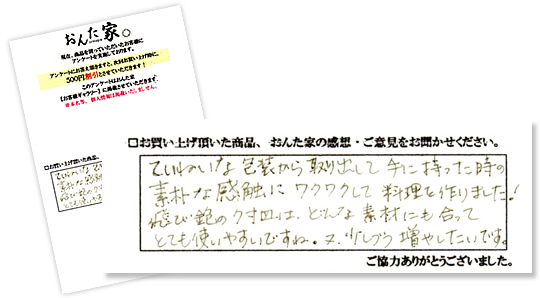 おんた家。
現在、商品を買っていただいたお客様に
アンケートを実施しております。
アンケートにお答え頂きますと、次回お買い上げ時に、
500円割引とさせていただきます!
このアンケートはおんた家
【お客様ギャラリー】に掲載させていただきます。
※本名等、個人情報は掲載いたしません。
□お買い上げ頂いた商品、
□お買い上げ頂いた商品、おんた家の感想・ご意見をお聞かせください。
ていねいな包装から取り出して手に持った時の
素朴な感触にワクワクして料理を作りました!
飛び鉋の7寸皿は、どんな素材にも合って
とても使いやすいですね。又、少しづつ増やしたいです。
ご協力ありがとうございました。